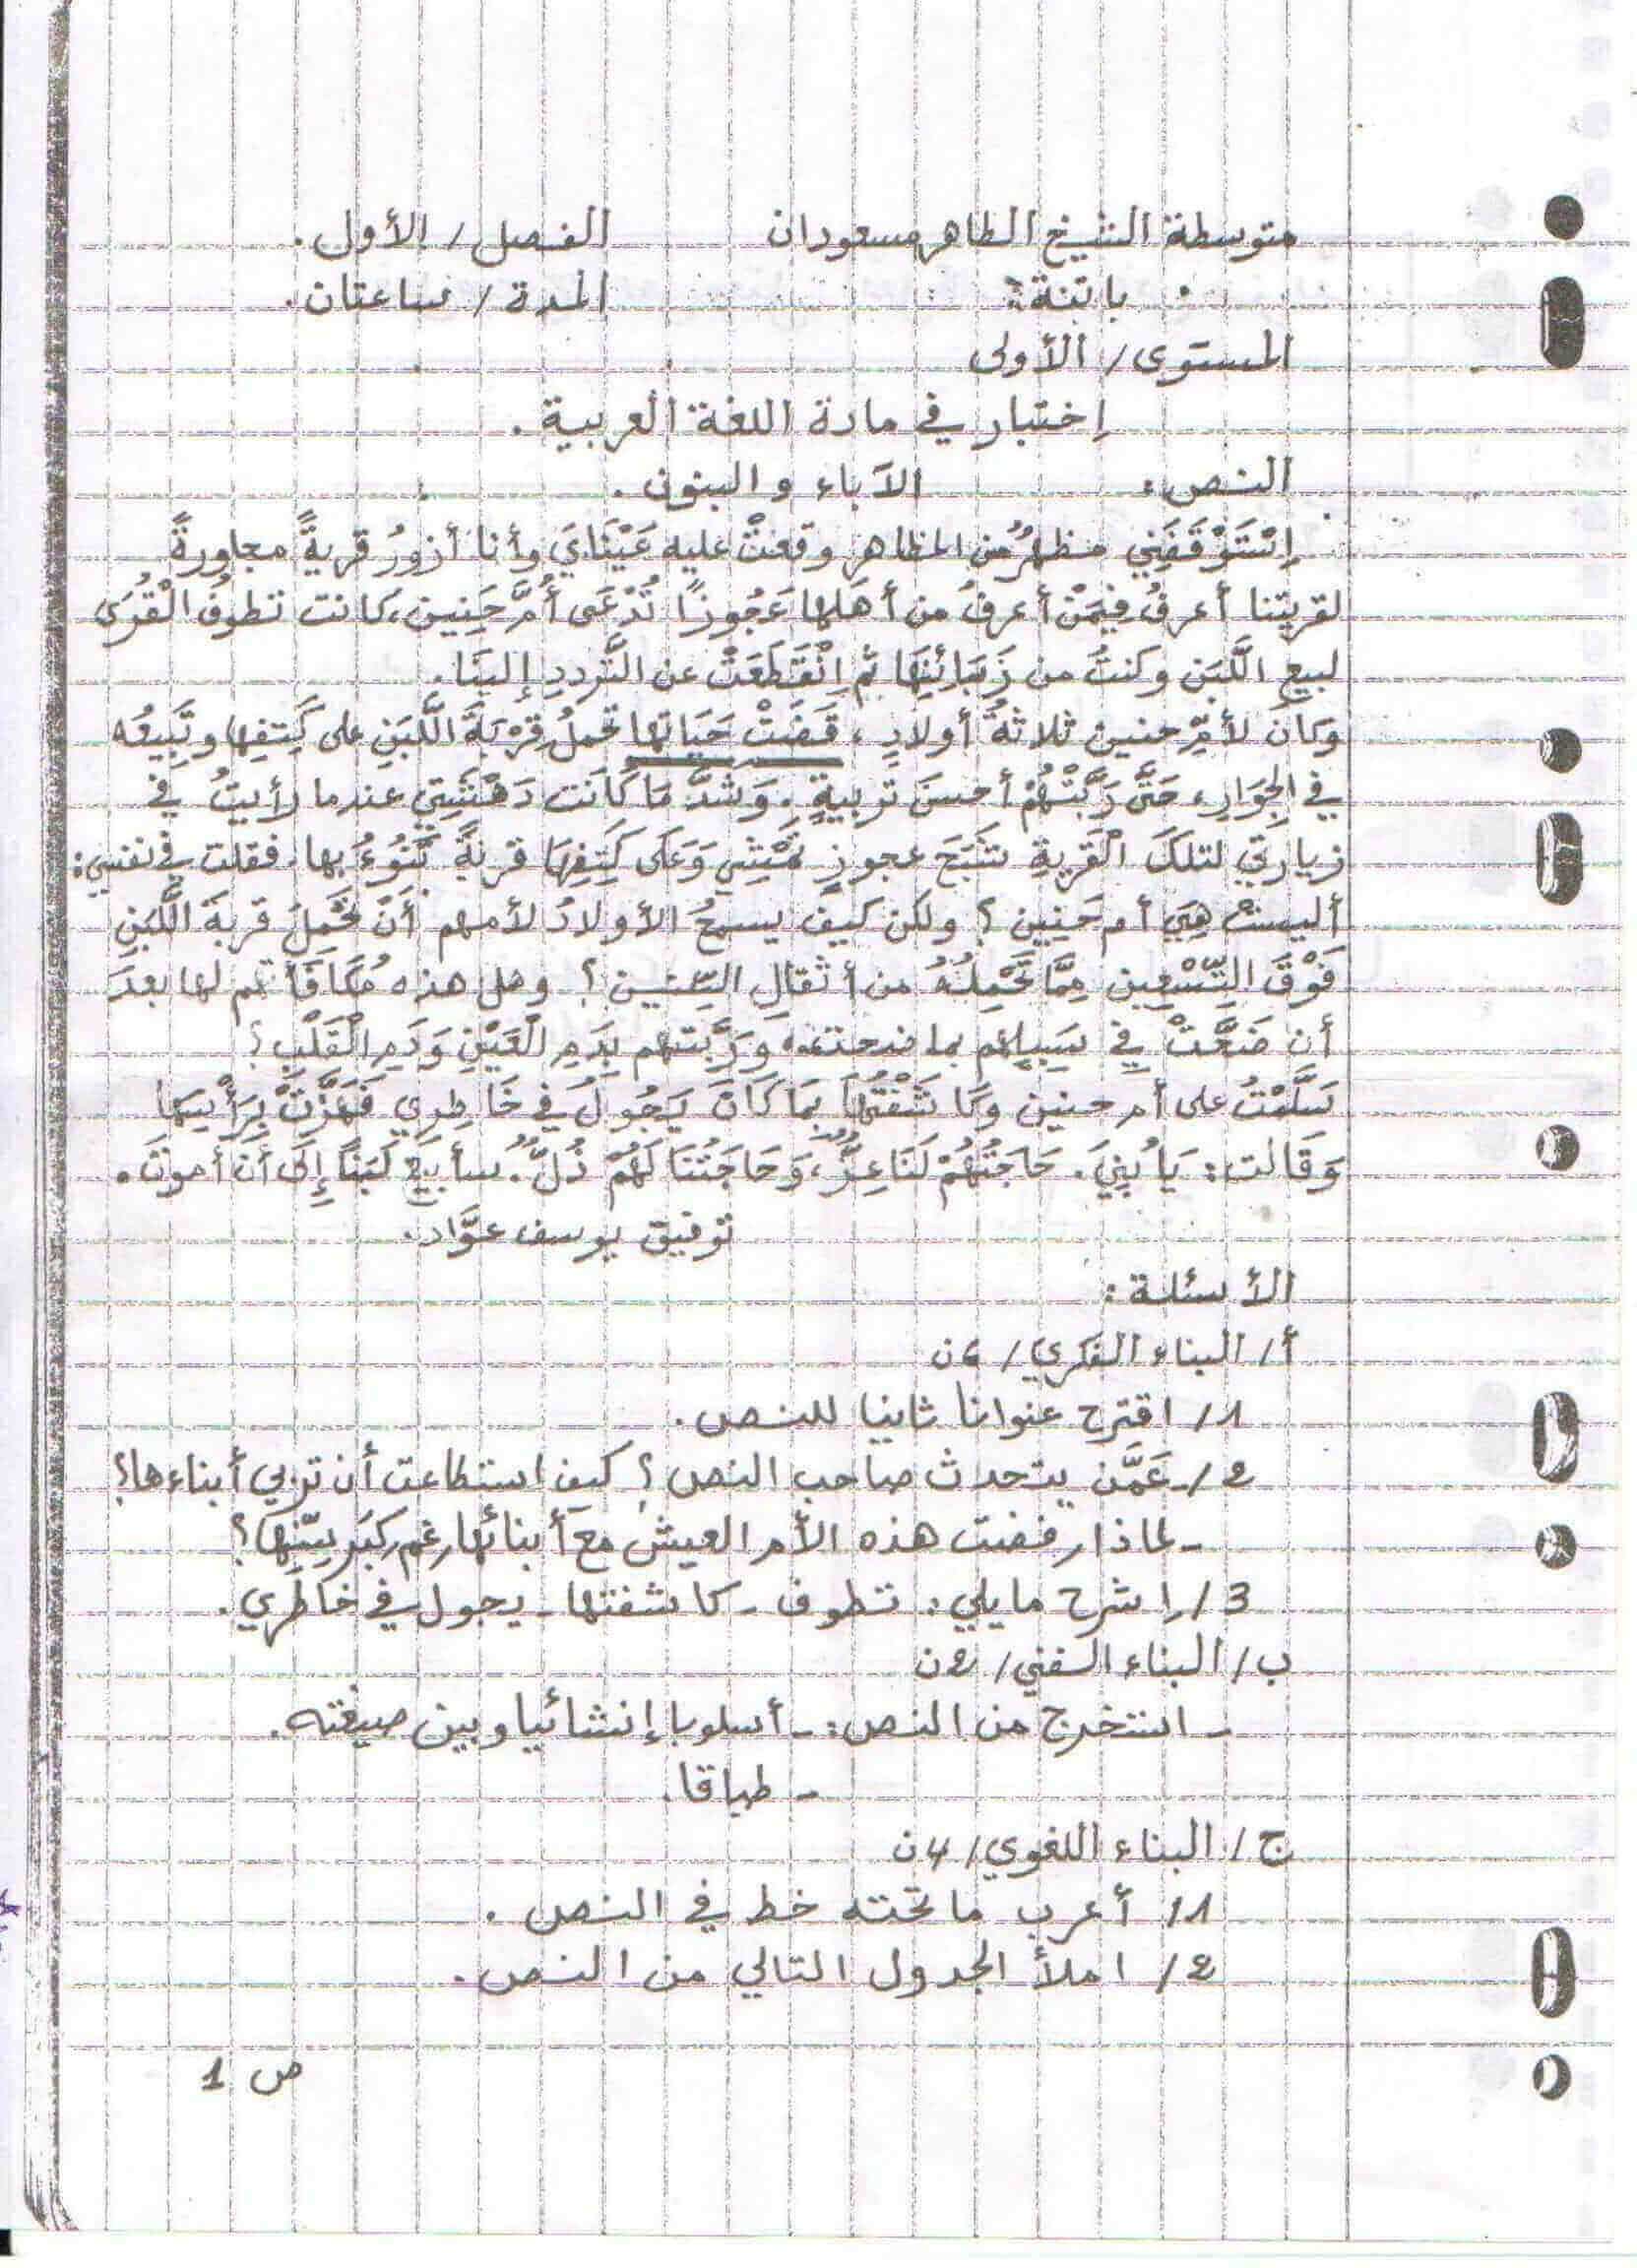 متوسطة الشيخ الطاهر مسعودان الفصل / الأول.
باتنة: المدة / ساعتان.
المستوى / الأولى
إختبار في مادة اللغة العربية.
النص: الآباء و البنون.
إسْتَوْقَفَنِي مظهرٌ من المظاهر وقعتْ عليه عَيْنَايَ وأنا أزورُ قريةً مجاورةً
لقريتنا أعرفُ فِيمَنْ أعرفُ من أهلها عَجُوزًا تُدْعَى أُمَّ حَنِين، كانت تطوفُ الْقُرَى
لبيعِ اللَّبَن وكنتُ من زَبَائِنِهَا ثم اِنْقَطَعَتْ عن التَّرددِ إلينَا.
وكَانَ لأمِّ حنين ثلاثةُ أولادٍ، قَضَتْ حَيَاتها تحملُ قِرْبَةَ اللَّبَنِ على كَتِفِها وتَبِيعُه
في الجِوَارِ، حَتَّى رَبَّتْهُمْ أحسنَ تربيةٍ. وَشَدَّ مَا كَانَت دَهْشَتِي عندما رأيتُ في
زيارتي لتلكَ الْقَريةِ شَبَحَ عجوزٍ تَمْشِي وَعَلى كَتِفِهَا قربةٌ تَنُوءُ بها. فقلت في نفسي:
أليست هِيَ أم حَنِين؟ ولكن كيفَ يسمحُ الأولادُ لأمهم أَنْ تَحْمِلَ قربةَ اللَّبَنِ
فَوْقَ التِّسْعِين مِمَّا تَحْمِلُهُ من أثقالِ السِّنين؟ وهل هذه مُكَافَأَتهم لها بعدَ
أن ضَحَّتْ فِي سَبِيلِهم بما ضحت به وَرَبَّتهم بِدَمِ الْعَيْنِ وَدَمِ الْقَلْبِ؟
سَلَّمْتُ على أم حنين وكَاشَفْتُهَا بِمَا كَانَ يَجُولُ في خَاطِرِي فَهَزَّتْ بِرَأْسِها
وَقَالت: يَا بُنِيَ. حَاجَتُهُمْ لَنَا عِزٌّ، وَحَاجَتُنَا لَهُمْ ذُلٌّ. سأبيعُ لَبَنًا إِلَى أَنْ أموتَ.
توفيق يوسف عوَّاد.
الأسئلة:
أ/ البناء الفكري / 6ن
1/ اقترح عنوانا ثانيا للنص.
2/ - عَمَّن يتحدث صاحب النص؟ كيف استطاعت أن تربي أبناءها؟
- لماذا رفضت هذه الأم العيش مع أبنائها رغم كبَر سِنِّها؟
3/ إشرح ما يلي: تطوف - كاشفتها - يجول في خاطري.
ب/ البناء الفني / 2ن
- استخرج من النص: - أسلوبا إنشائيا وبين صيغته.
- طباقا.
ج/ البناء اللغوي / 4ن
1/ أعرب ما تحته خط في النص.
2/ املأ الجدول التالي من النص.
ص 1